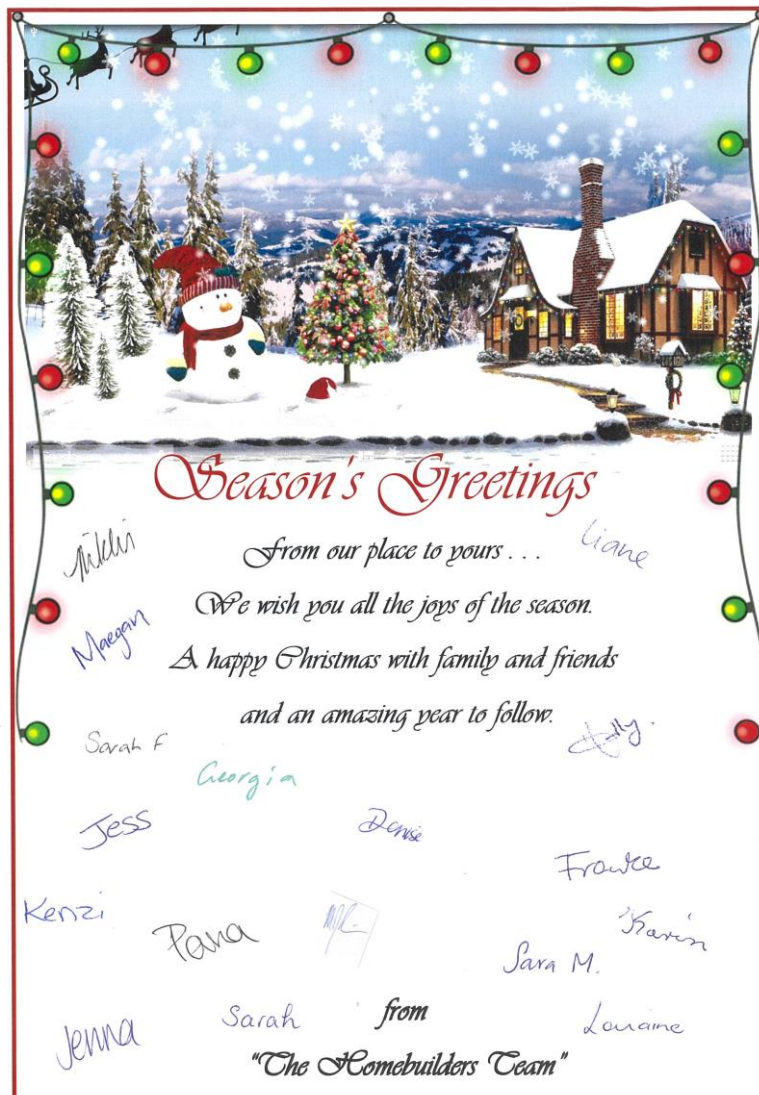 Season's Greetings
From our place to yours . . .
Liane
We wish you all the joys of the season.
Maegan
A happy Christmas with family and friends
and an amazing year to follow.
Sarah F
Georgia
Jess
Denise
Kenzi
Pana
Karin
Sara M.
Jenna
Sarah
from
Lorraine
"The Homebuilders Team"